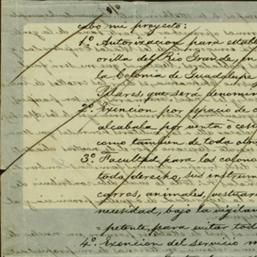 cabo mi proyecto:
1º Autorizacion para estable
orilla del Rio Grande, fr
la Colonia de Guadalupe
Pilares que será denomin
2º Exencion por espacio de
alcabala por
como tambien de toda
3º Facultad para los colonos
todo derecho, sus instrum
carros, animales, vestuari
necesidad, bajo la vigilan
petente, para evitar tod
4º Exencion del servicio m